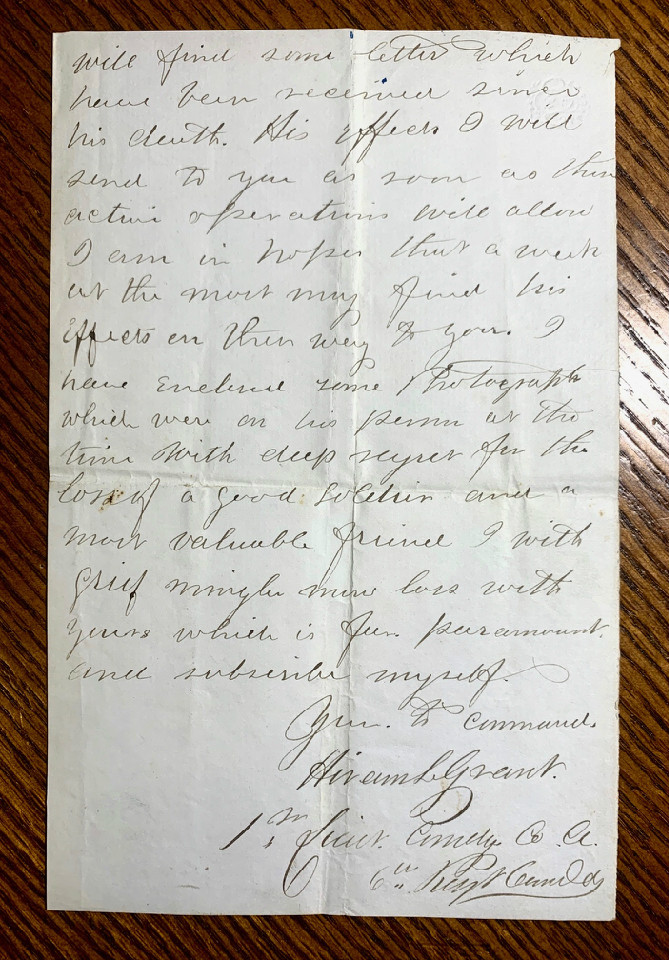 will find some letter which
have been received since
his death. His effects I will
send to you as soon as these
active operations will allow
I am in hopes that a week
at the most may find his
effects on their way to you. I
have enclosed some Photographs
which were on his person at the
time With deep regret for the
loss of a good soldier and a
most valuable friend I with
grief mingle mine loss with
yours which is far paramount.
and subscribe myself.
Your. to command.
Hiram L Grant.
1st Lieut. Comdg Co A.
6th Regt Conn Vols